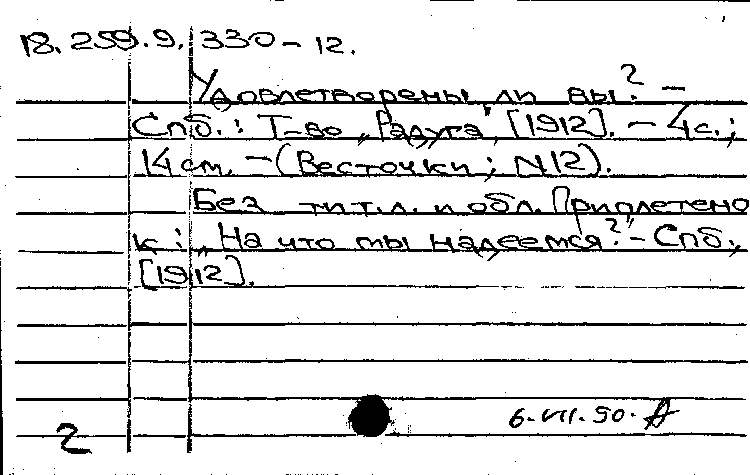 18.259.9.330-12.
Удовлетворены ли вы? -
Спб.: Т-во „Радуга", [1912]. - 4 с.;
14 см. - (Весточки; N12).
Без тит.л. и обл. Приплетено
к: „На что мы надеемся?" - Спб,
[1912].
6.VII.90.
2